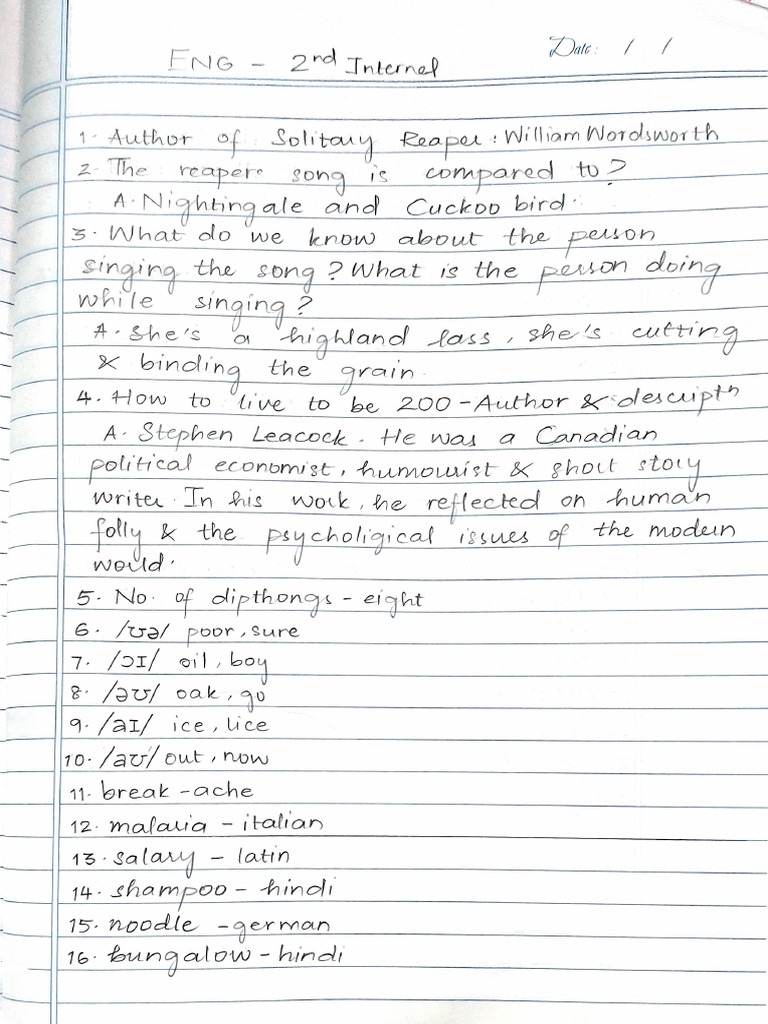 ENG - 2nd Internal
Date: / /
1. Author of Solitary Reaper: William Wordsworth
2. The reapers song is compared to?
A. Nightingale and Cuckoo bird.
3. What do we know about the person
singing the song? What is the person doing
while singing?
A. She's a highland lass, she's cutting
& binding the grain
4. How to live to be 200 - Author & descriptn
A. Stephen Leacock. He was a Canadian
political economist, humourist & short story
writer. In his work, he reflected on human
folly & the psycholigical issues of the modern
world.
5. No. of dipthongs - eight
6. /ʊə/ poor, sure
7. /ɔɪ/ oil, boy
8. /əʊ/ oak, go
9. /aɪ/ ice, lice
10. /aʊ/ out, now
11. break - ache
12. malaria - italian
13. salary - latin
14. shampoo - hindi
15. noodle - german
16. bungalow - hindi